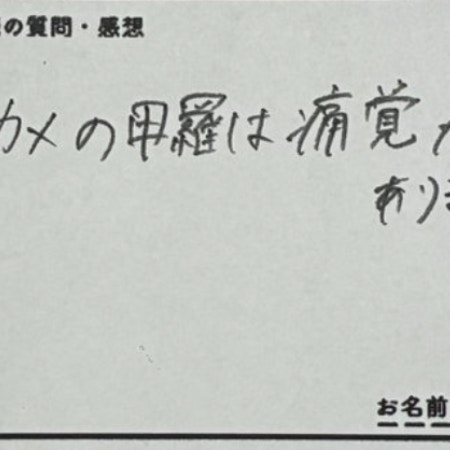 の質問・感想
カメの甲羅は痛覚
あり
お名前